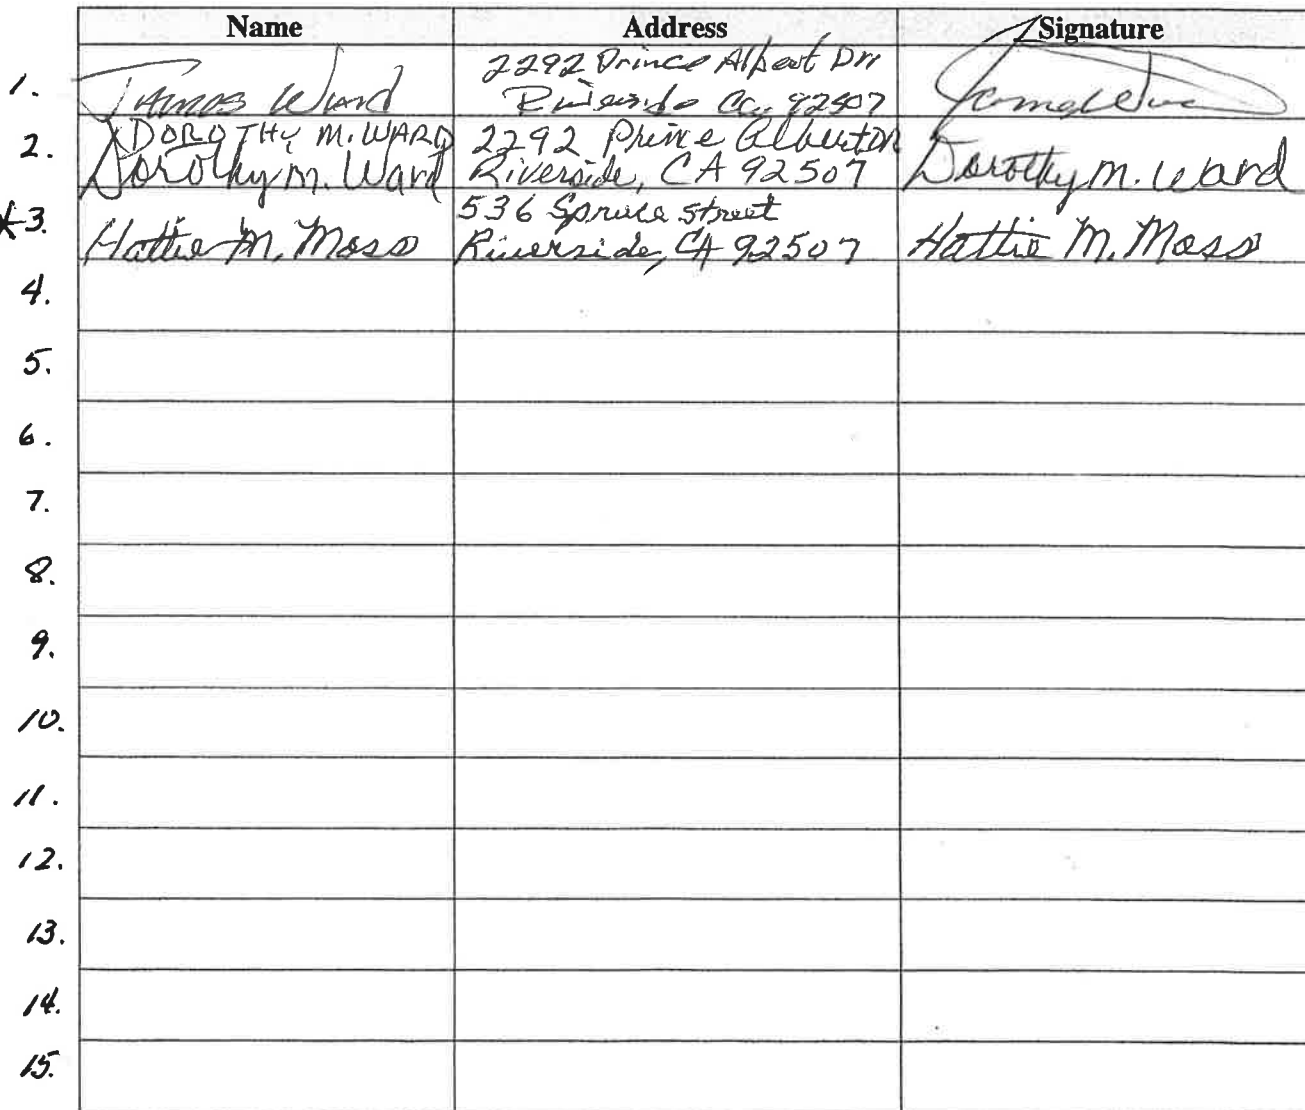 Name Address Signature
1. James Ward 2292 Prince Albert Dr
Riverside Ca 92507 James Ward
2. DOROTHY M. WARD
Dorothy M. Ward 2292 Prince Albert DR
Riverside, CA 92507 Dorothy M. Ward
*3. Hattie M. Moss 536 Spruce Street
Riverside, CA 92507 Hattie M. Moss
4.
5.
6.
7.
8.
9.
10.
11.
12.
13.
14.
15.